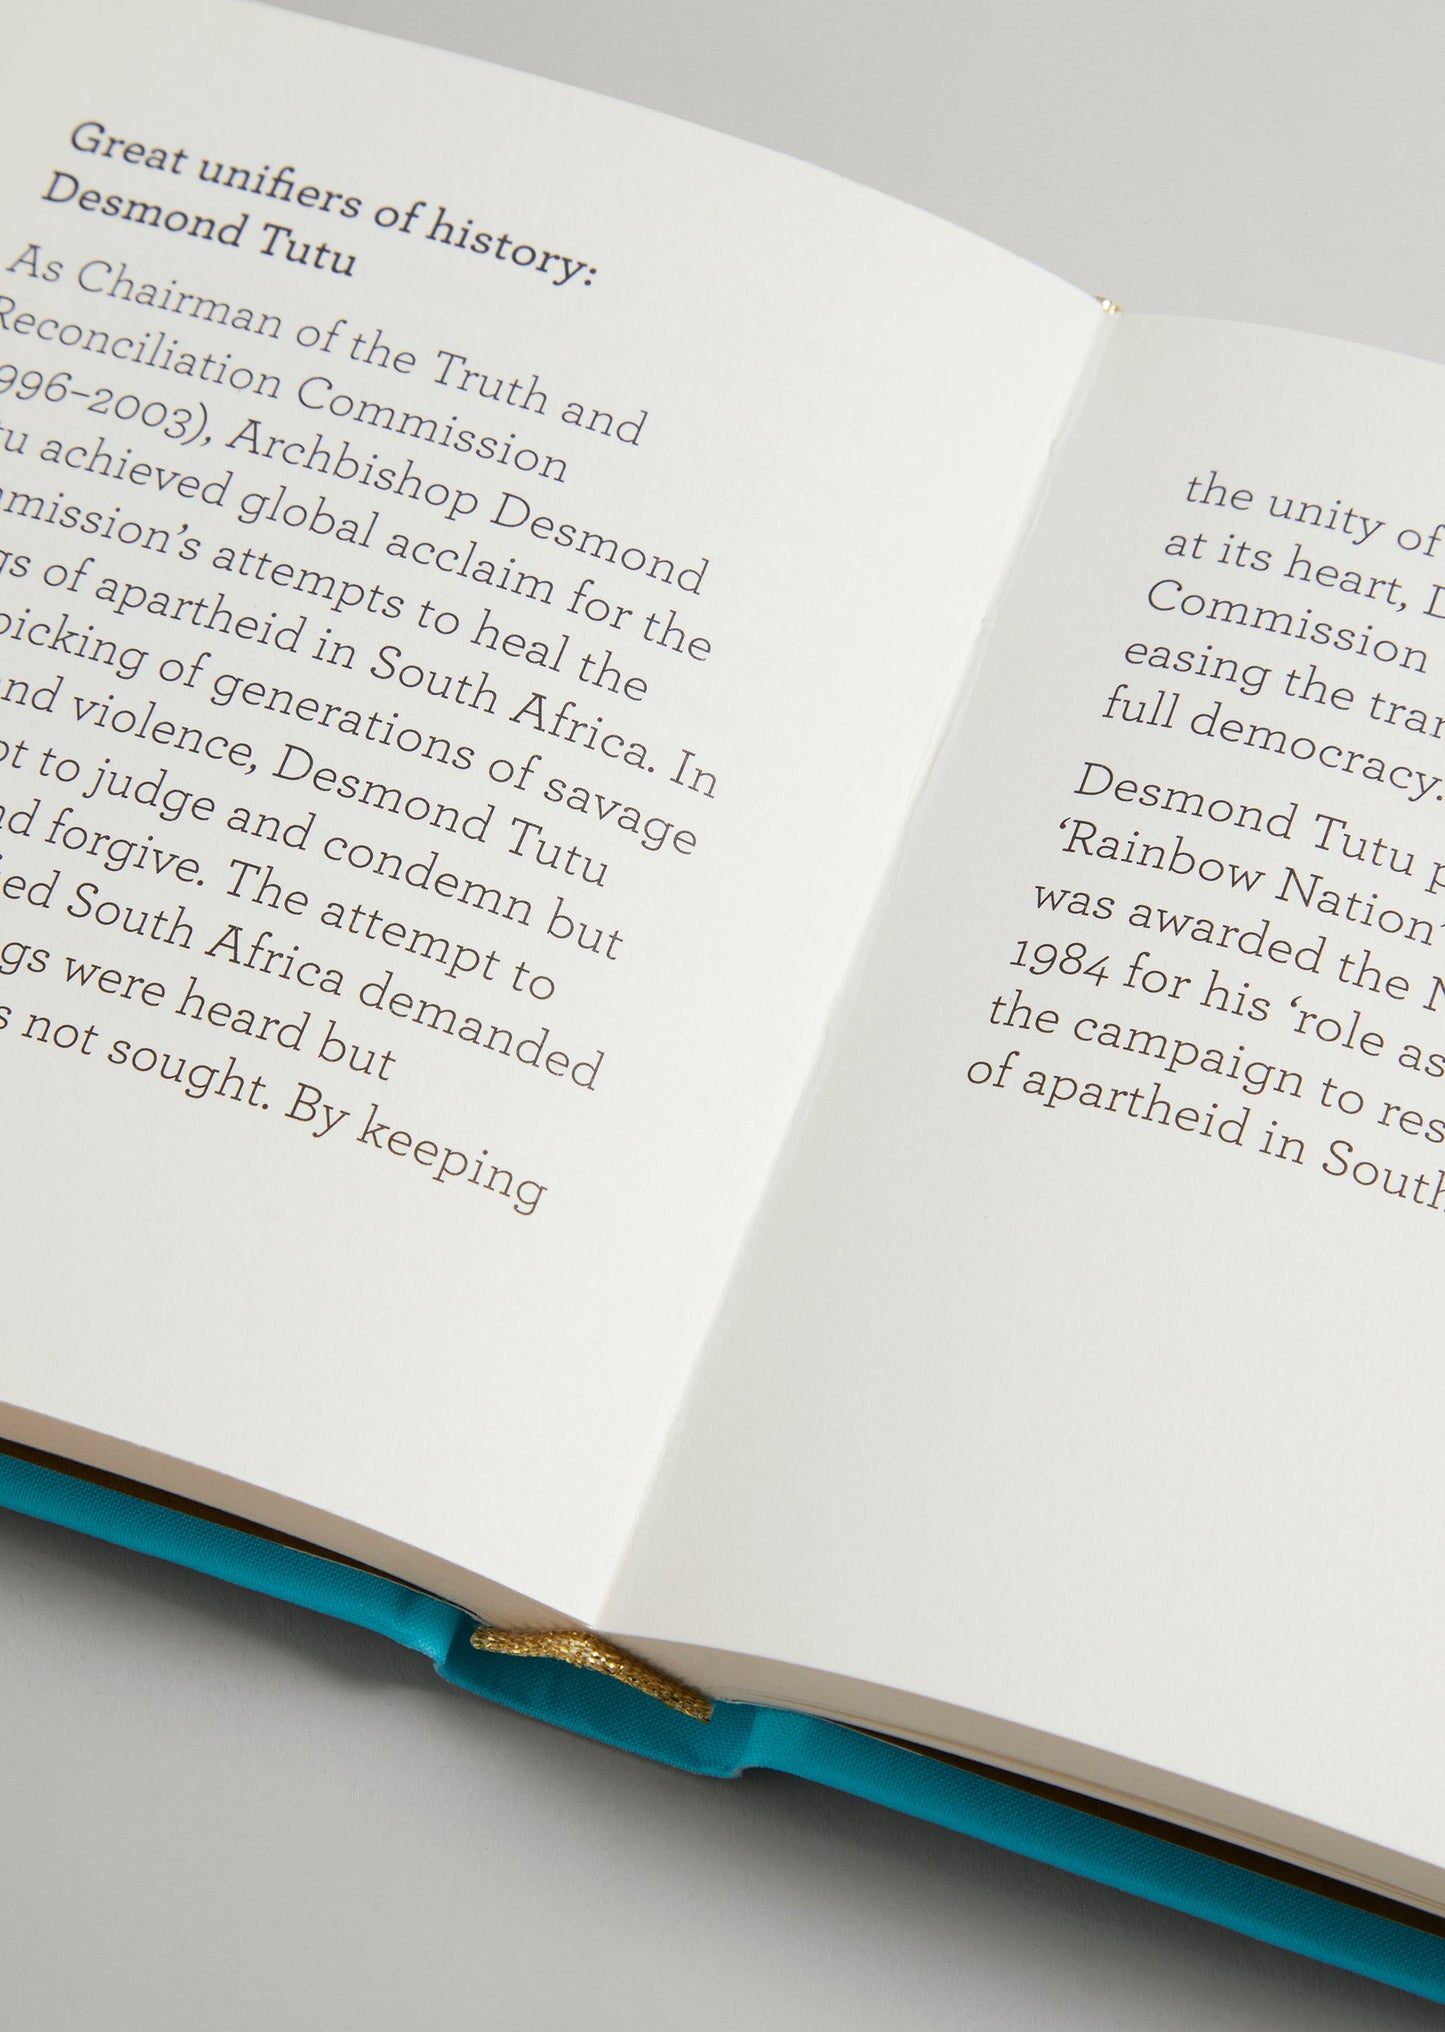 Great unifiers of history:
Desmond Tutu
As Chairman of the Truth and
Reconciliation Commission
996–2003), Archbishop Desmond
tu achieved global acclaim for the
mmission’s attempts to heal the
gs of apartheid in South Africa. In
picking of generations of savage
and violence, Desmond Tutu
ot to judge and condemn but
nd forgive. The attempt to
ied South Africa demanded
gs were heard but
s not sought. By keeping
the unity of
at its heart, D
Commission
easing the tran
full democracy.
Desmond Tutu p
‘Rainbow Nation’
was awarded the N
1984 for his ‘role as
the campaign to res
of apartheid in South